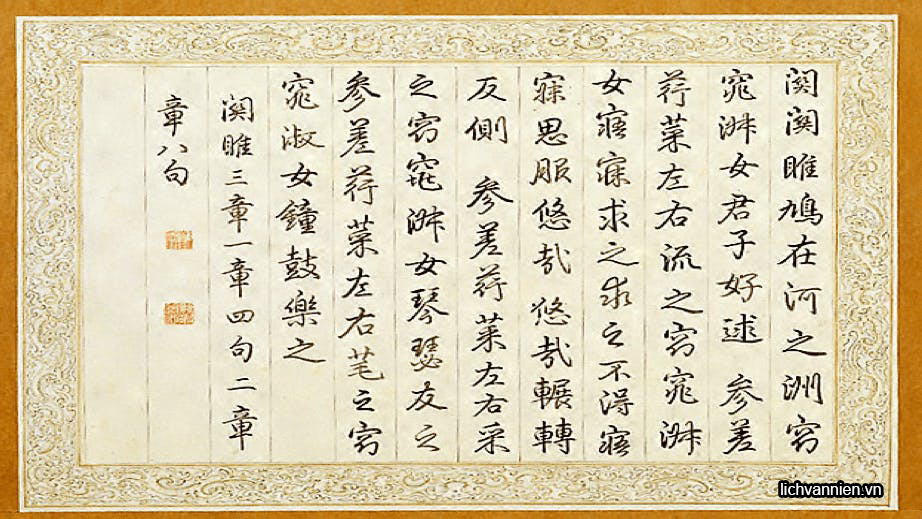 關關雎鳩在河之洲窈
窕淑女君子好逑 參差
荇菜左右流之窈窕淑
女寤寐求之求之不得寤
寐思服悠哉悠哉輾轉
反側 參差荇菜左右采
之窈窕淑女琴瑟友之
參差荇菜左右芼之窈
窕淑女鐘鼓樂之
關雎三章一章四句二章
章八句
lichvannien.vn